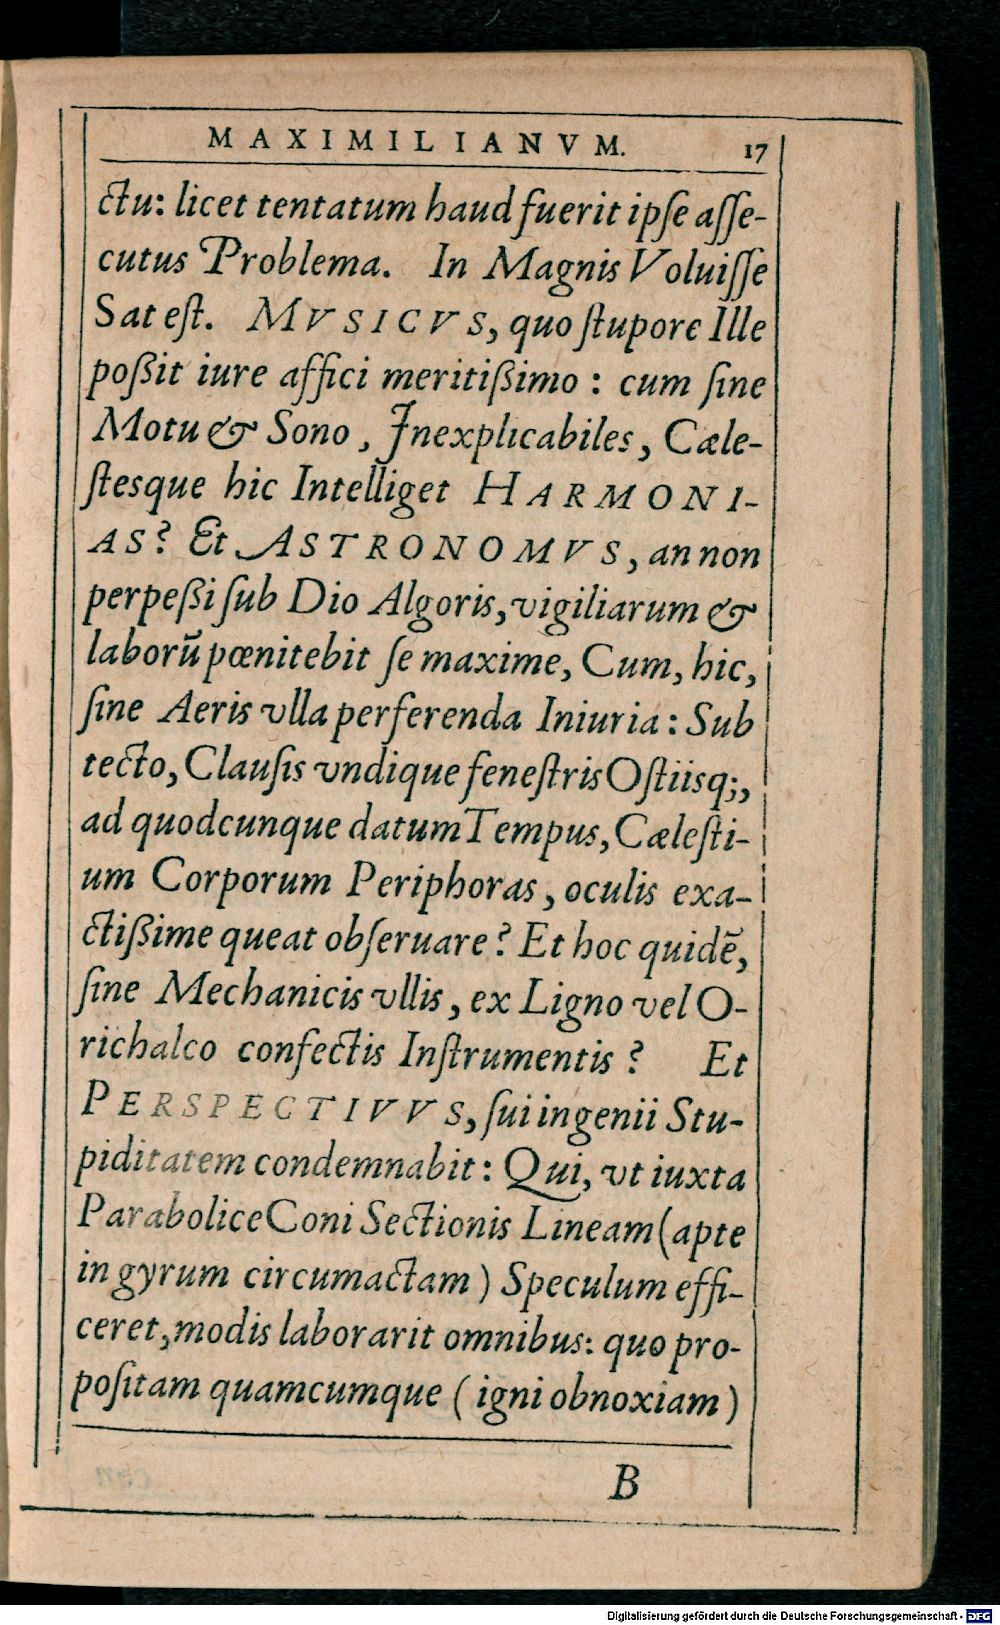 MAXIMILIANVM. 17
ctu: licet tentatum haud fuerit ipſe aſſe-
cutus Problema. In Magnis Voluiſſe
Sat eſt. MVSICVS, quo ſtupore Ille
poßit iure affici meritißimo: cum ſine
Motu & Sono, Inexplicabiles, Cæle-
ſtesque hic Intelliget HARMONI-
AS? Et ASTRONOMVS, an non
perpeßi ſub Dio Algoris, vigiliarum &
laborũ pœnitebit ſe maxime, Cum, hic,
ſine Aeris vlla perferenda Iniuria: Sub
tecto, Clauſis vndique feneſtris Oſtiisq;,
ad quodcunque datum Tempus, Cæleſti-
um Corporum Periphoras, oculis exa-
ctißime queat obſeruare? Et hoc quidẽ,
ſine Mechanicis vllis, ex Ligno vel O-
richalco confectis Inſtrumentis? Et
PERSPECTIVVS, ſui ingenii Stu-
piditatem condemnabit: Qui, vt iuxta
Parabolice Coni Sectionis Lineam (apte
in gyrum circumactam) Speculum effi-
ceret, modis laborarit omnibus: quo pro-
poſitam quamcumque (igni obnoxiam)
B
Digitalisierung gefördert durch die Deutsche Forschungsgemeinschaft - DFG